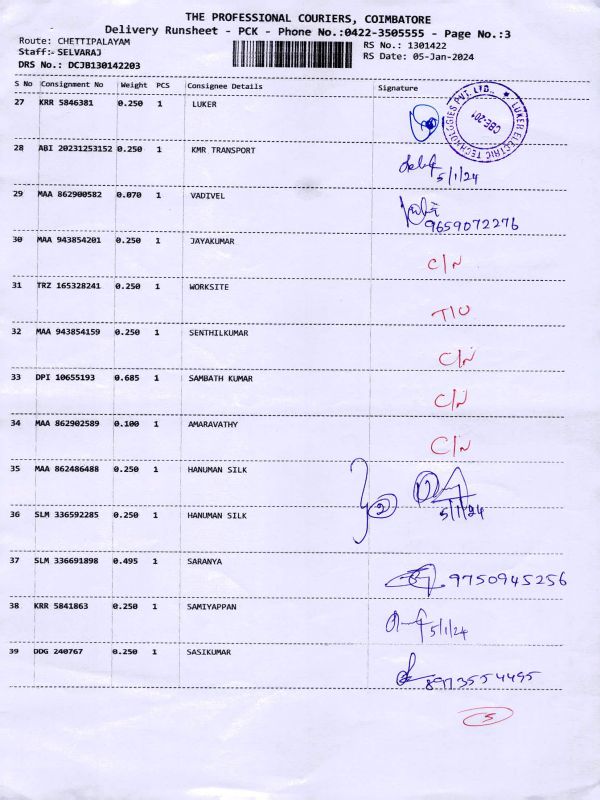 THE PROFESSIONAL COURIERS, COIMBATORE
Delivery Runsheet - PCK - Phone No.:0422-3505555 - Page No.:3
Route: CHETTIPALAYAM
RS No.: 1301422
Staff:- SELVARAJ
RS Date: 05-Jan-2024
DRS No.: DCJB130142203
S No Consignment No Weight PCS Consignee Details Signature
27 KRR 5846381 0.250 1 LUKER
LUKER ELECTRIC TECHNOLOGIES PVT. LTD.,
CBE-201
28 ABI 20231253152 0.250 1 KMR TRANSPORT
5/1/24
29 MAA 862900582 0.070 1 VADIVEL
9659072276
30 MAA 943854201 0.250 1 JAYAKUMAR
C/N
31 TRZ 165328241 0.250 1 WORKSITE
T/U
32 MAA 943854159 0.250 1 SENTHILKUMAR
C/N
33 DPI 10655193 0.685 1 SAMBATH KUMAR
C/N
34 MAA 862902589 0.100 1 AMARAVATHY
C/N
35 MAA 862486488 0.250 1 HANUMAN SILK
2
5/1/24
36 SLM 336592285 0.250 1 HANUMAN SILK
37 SLM 336691898 0.495 1 SARANYA
9750945256
38 KRR 5841863 0.250 1 SAMIYAPPAN
5/1/24
39 DDG 240767 0.250 1 SASIKUMAR
8973554495
5